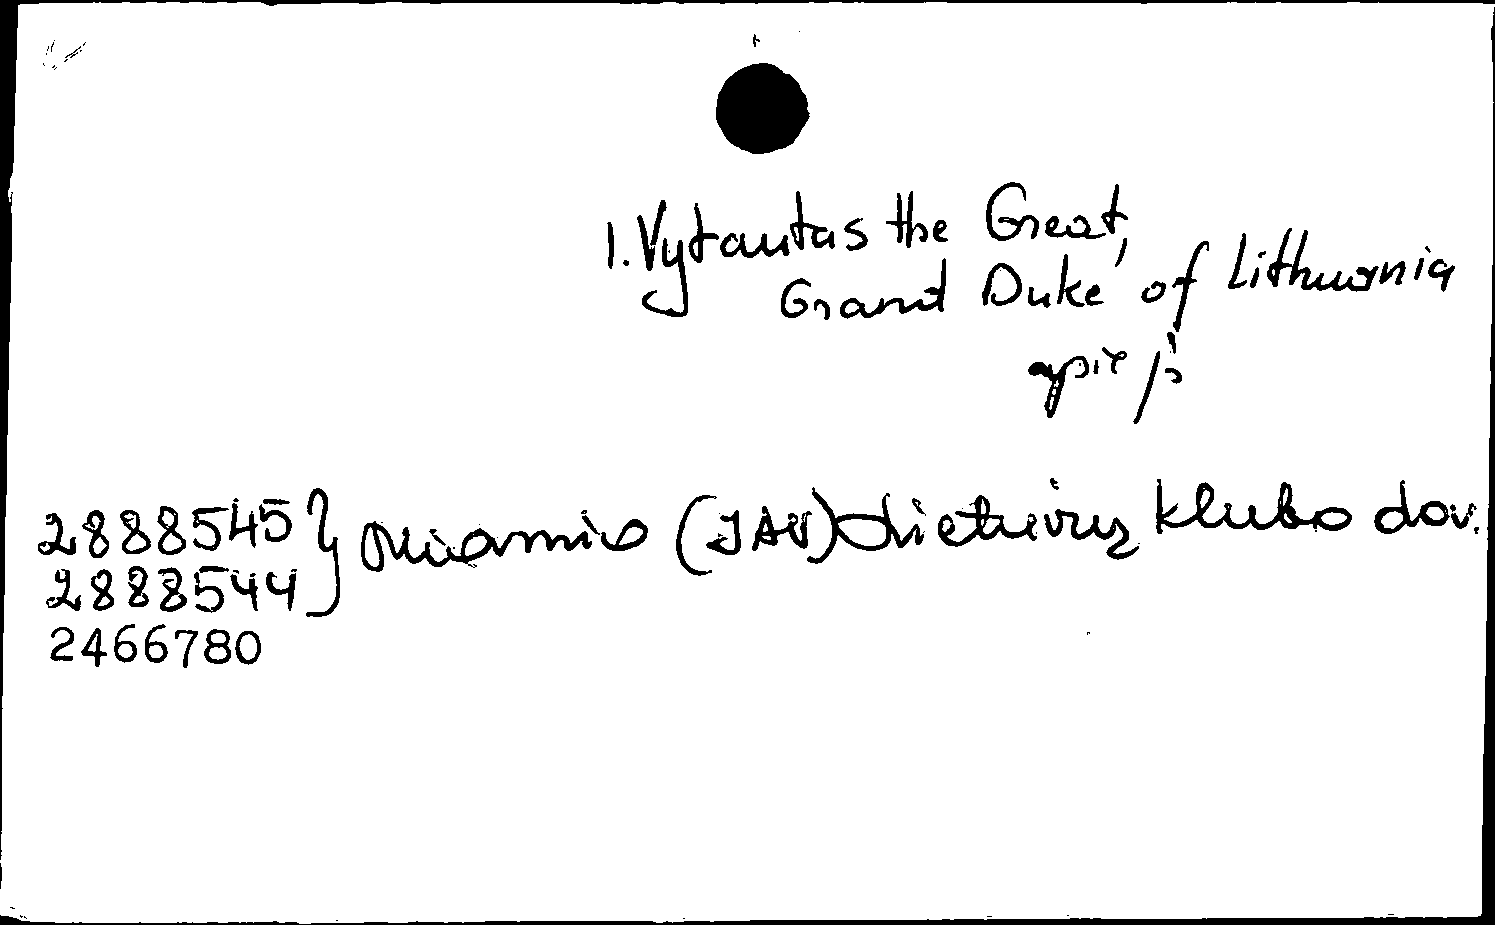 1. Vytautas the Great,
Grand Duke of Lithuania
apie jį
2888545 } Miamio (JAV) Lietuvių klubo dov.
2888544
2466780